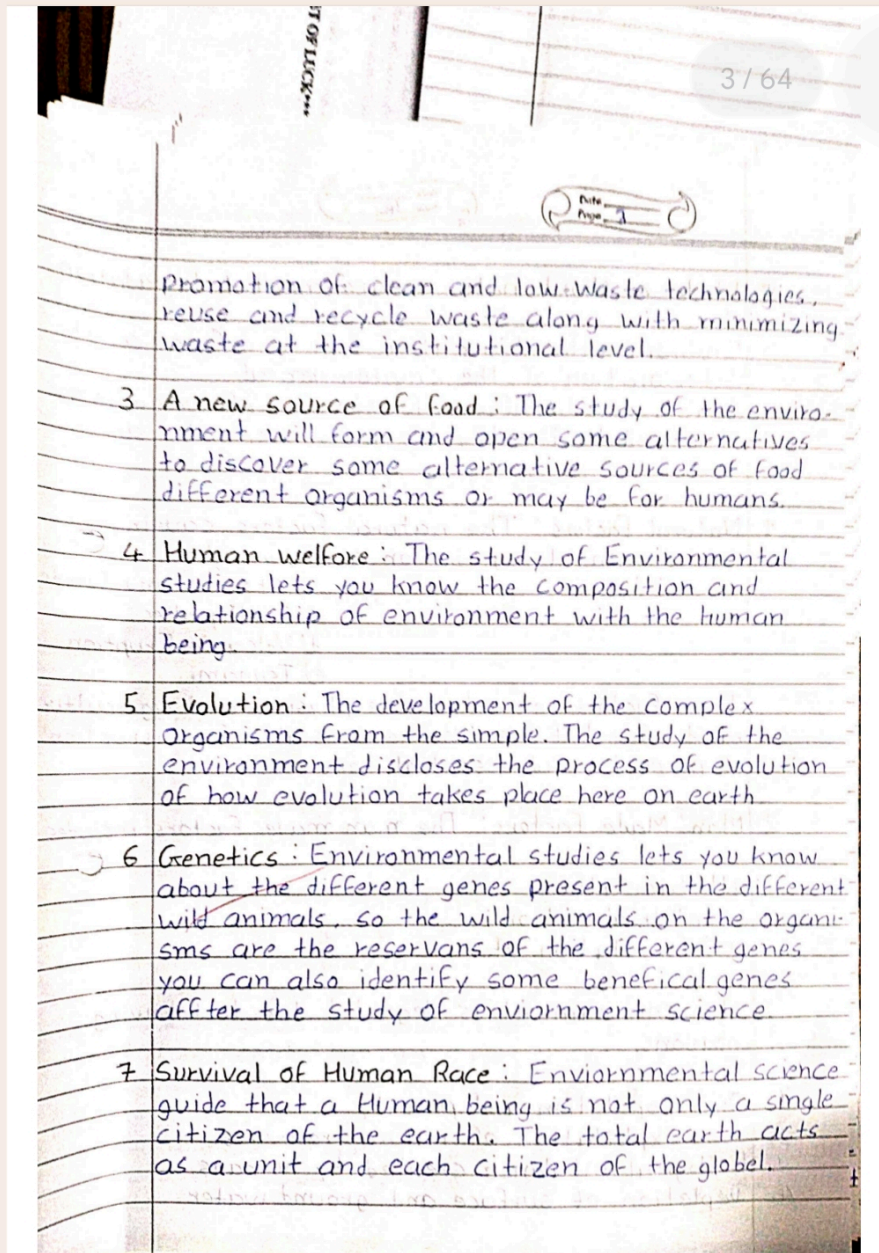 T OF LUCK***
3/64
Date
Page 2
promotion of clean and low-waste technologies,
reuse and recycle waste along with minimizing
waste at the institutional level.
3 A new source of food : The study of the enviro-
nment will form and open some alternatives
to discover some alternative sources of food
different organisms or may be for humans.
4 Human welfare : The study of Environmental
studies lets you know the composition and
relationship of environment with the human
being.
5 Evolution : The development of the complex
organisms from the simple. The study of the
environment discloses the process of evolution
of how evolution takes place here on earth
6 Genetics : Environmental studies lets you know
about the different genes present in the different
wild animals, so the wild animals on the organi-
sms are the reservans of the different genes
you can also identify some benefical genes
affter the study of enviornment science.
7 Survival of Human Race : Enviornmental science
guide that a Human being is not only a single
citizen of the earth. The total earth acts
as a unit and each citizen of the globel.